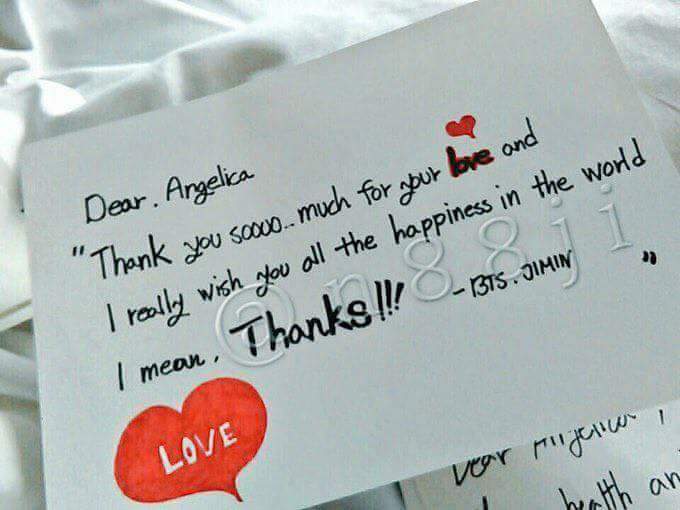 Dear. Angelica
"Thank you soooo.. much for your love and
I really wish you all the happiness in the world
I mean, Thanks!!! - BTS. JIMIN "
@n88ji
LOVE
Dear Angelica,
health an